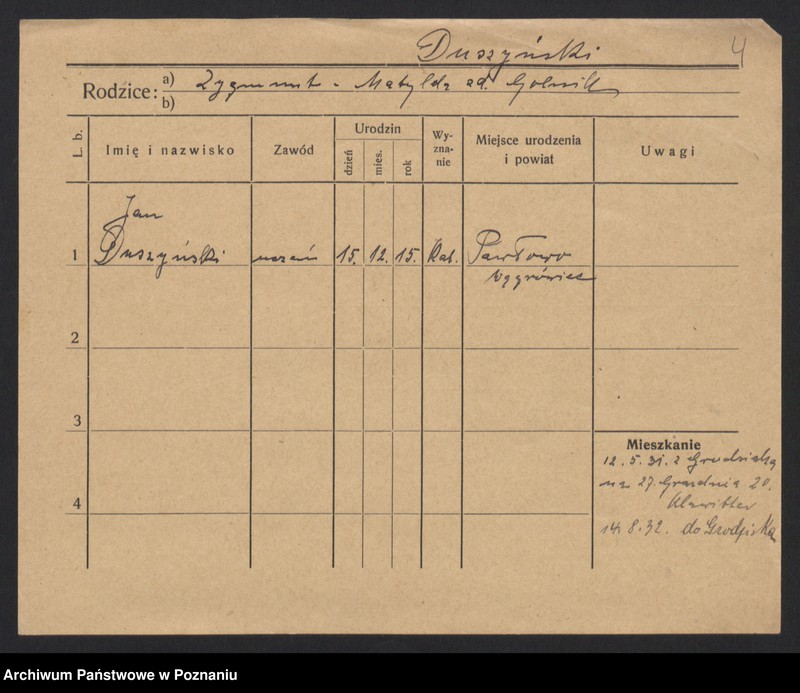 Duszyński
4
Rodzice: a) Zygmunt - Matylda
b)
L. b.
Imię i nazwisko
Zawód
Urodzin
dzień
mies.
rok
Wy-
zna-
nie
Miejsce urodzenia
i powiat
Uwagi
Jan
1 Duszyński uczeń 15. 12. 15. Kat. Pawłowo
Wągrówiec
2
3
4
Mieszkanie
12.5.31. z Grodziska
na 27. Grudnia 20.
Klawitter
14.8.32. do Grodziska
Archiwum Państwowe w Poznaniu